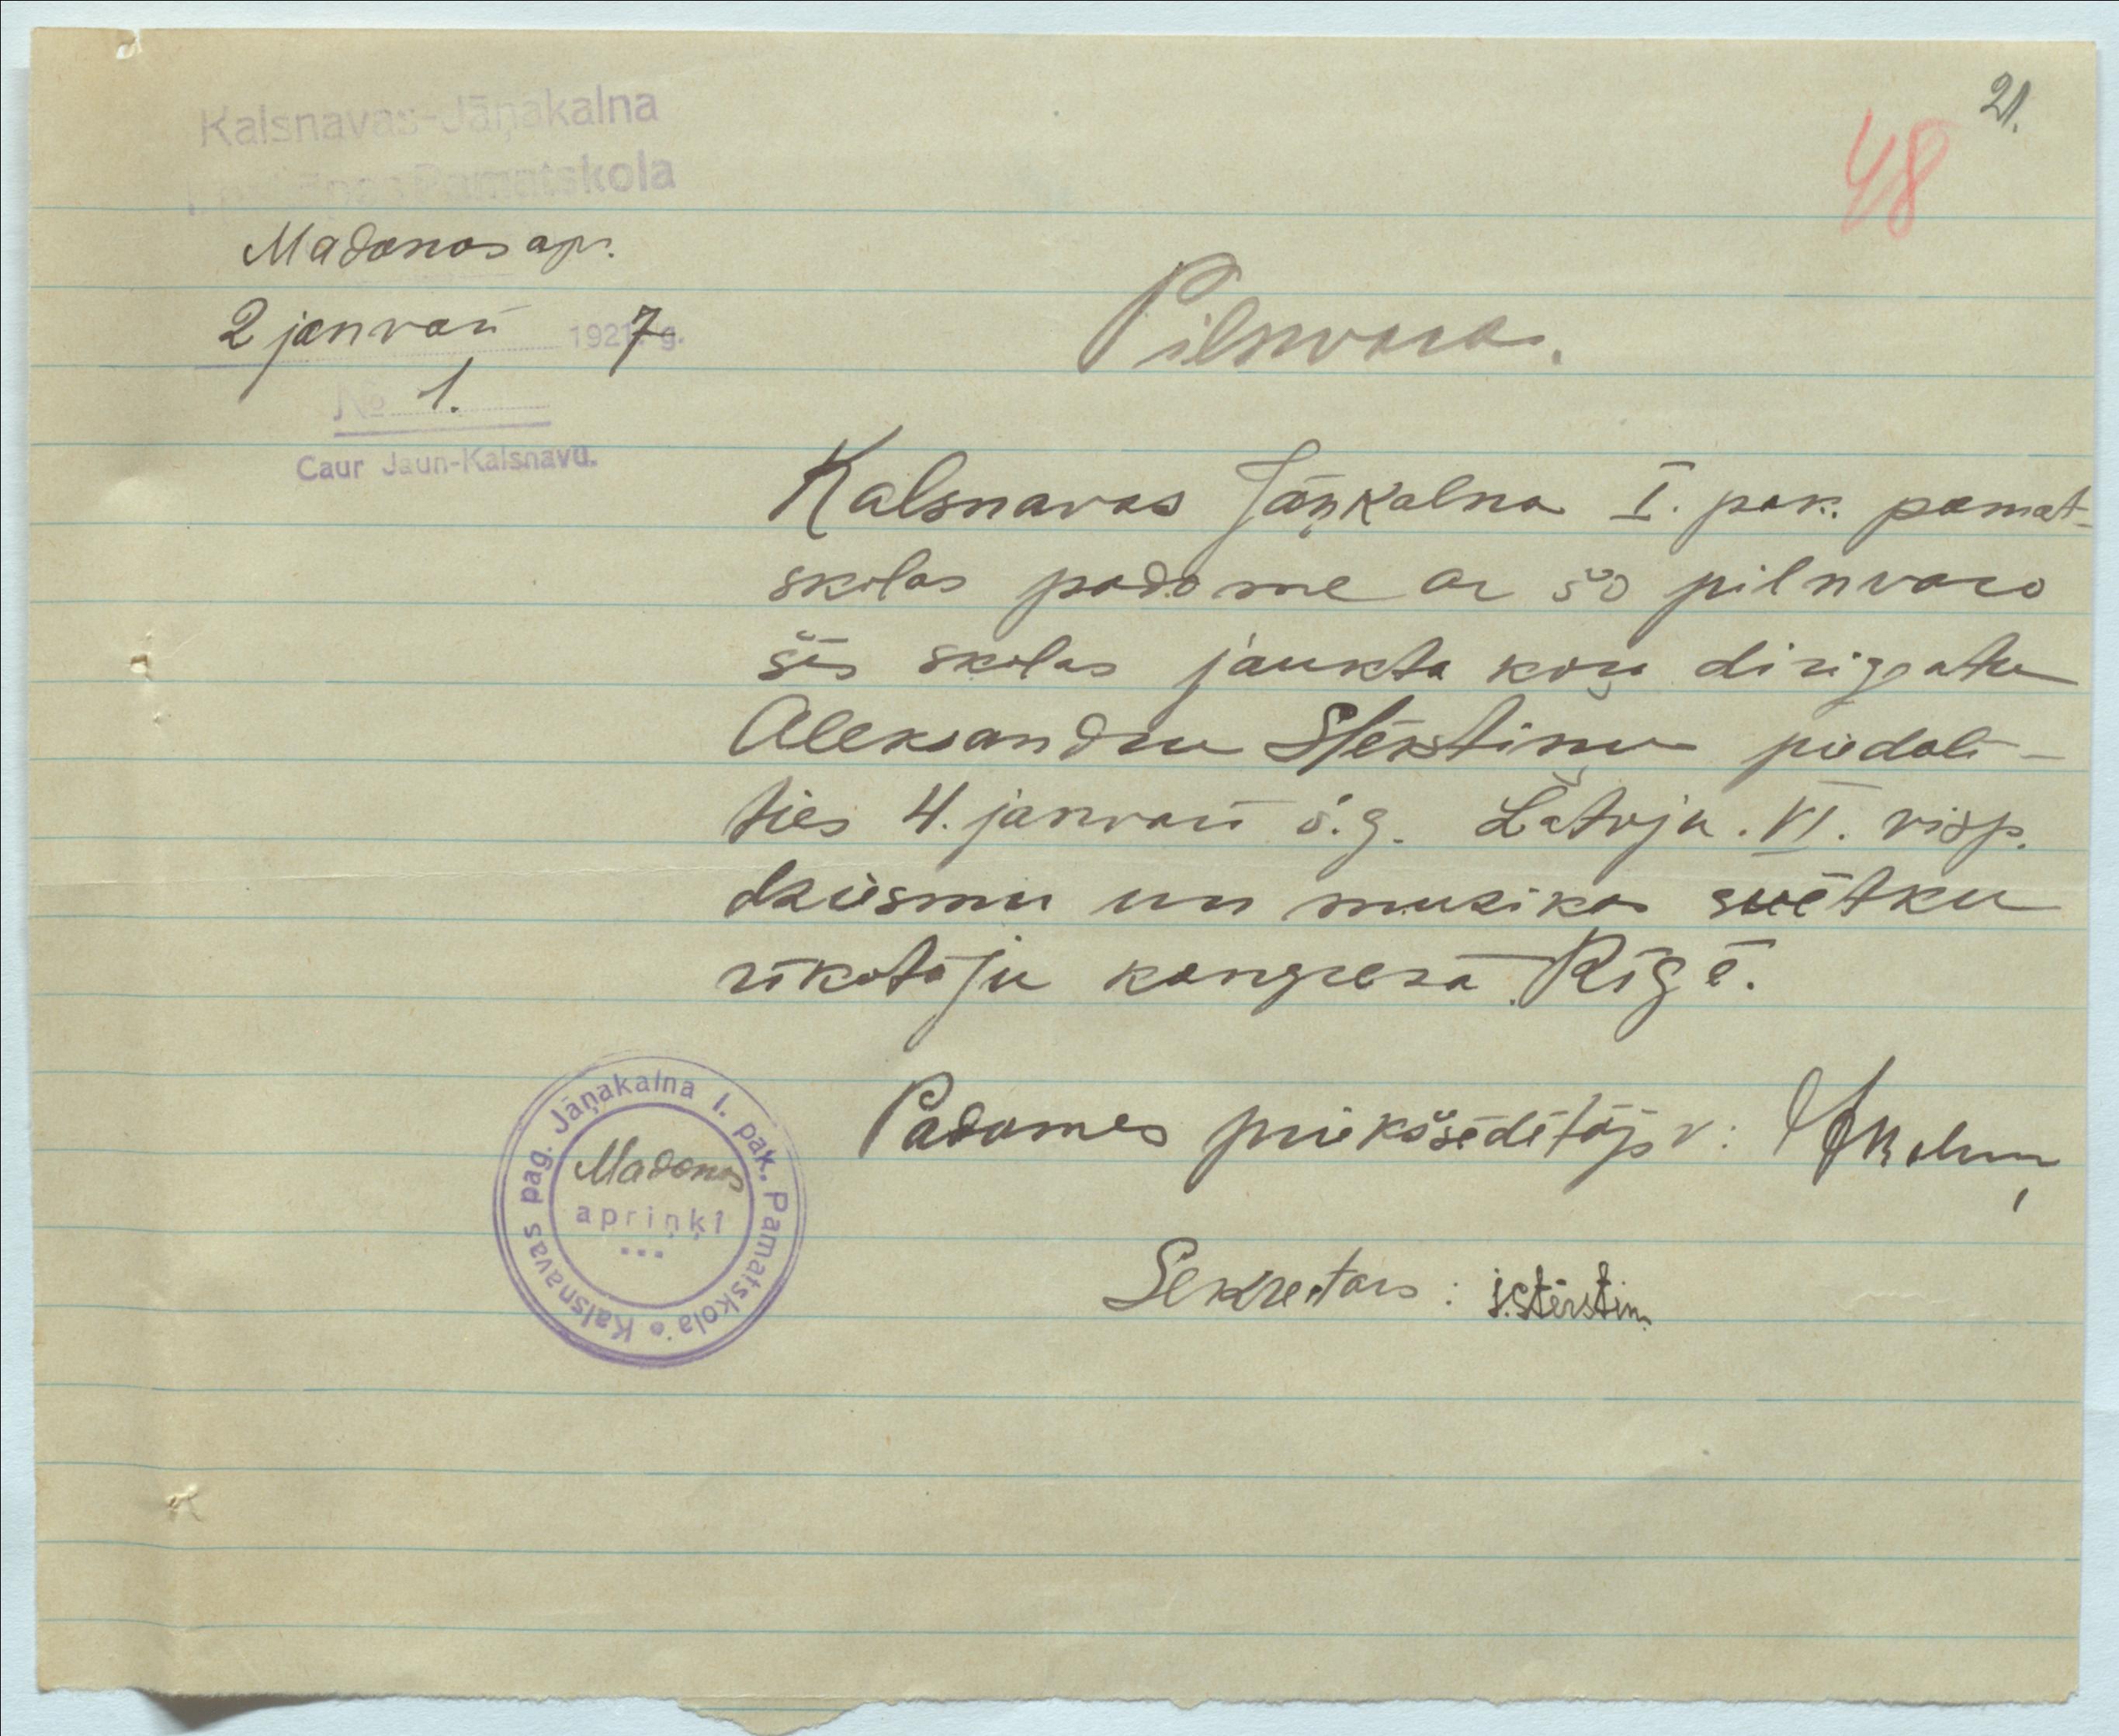 21.
48
Kalsnavas-Jāņakalna
Pamatskola
Madonas apr.
2 janvarī 1927 g.
№ 1.
Caur Jaun-Kalsnavu.
Pilnvara.
Kalsnavas Jāņkalna I. pak. pamat-
skolas padome ar šo pilnvaro
šīs skolas jaukta koŗa diriģentu
Aleksandru Stērstiņu piedalī-
ties 4. janvarī š.g. Latvju. VI. visp.
dziesmu un muzikas svētku
rīkotāju kongresā Rīgā.
Padomes priekšsēdētājs v:
Sekretārs: J. Stērstiņ
Kalsnavas pag. Jāņakalna I. pak. Pamatskola
Madonas
apriņķī